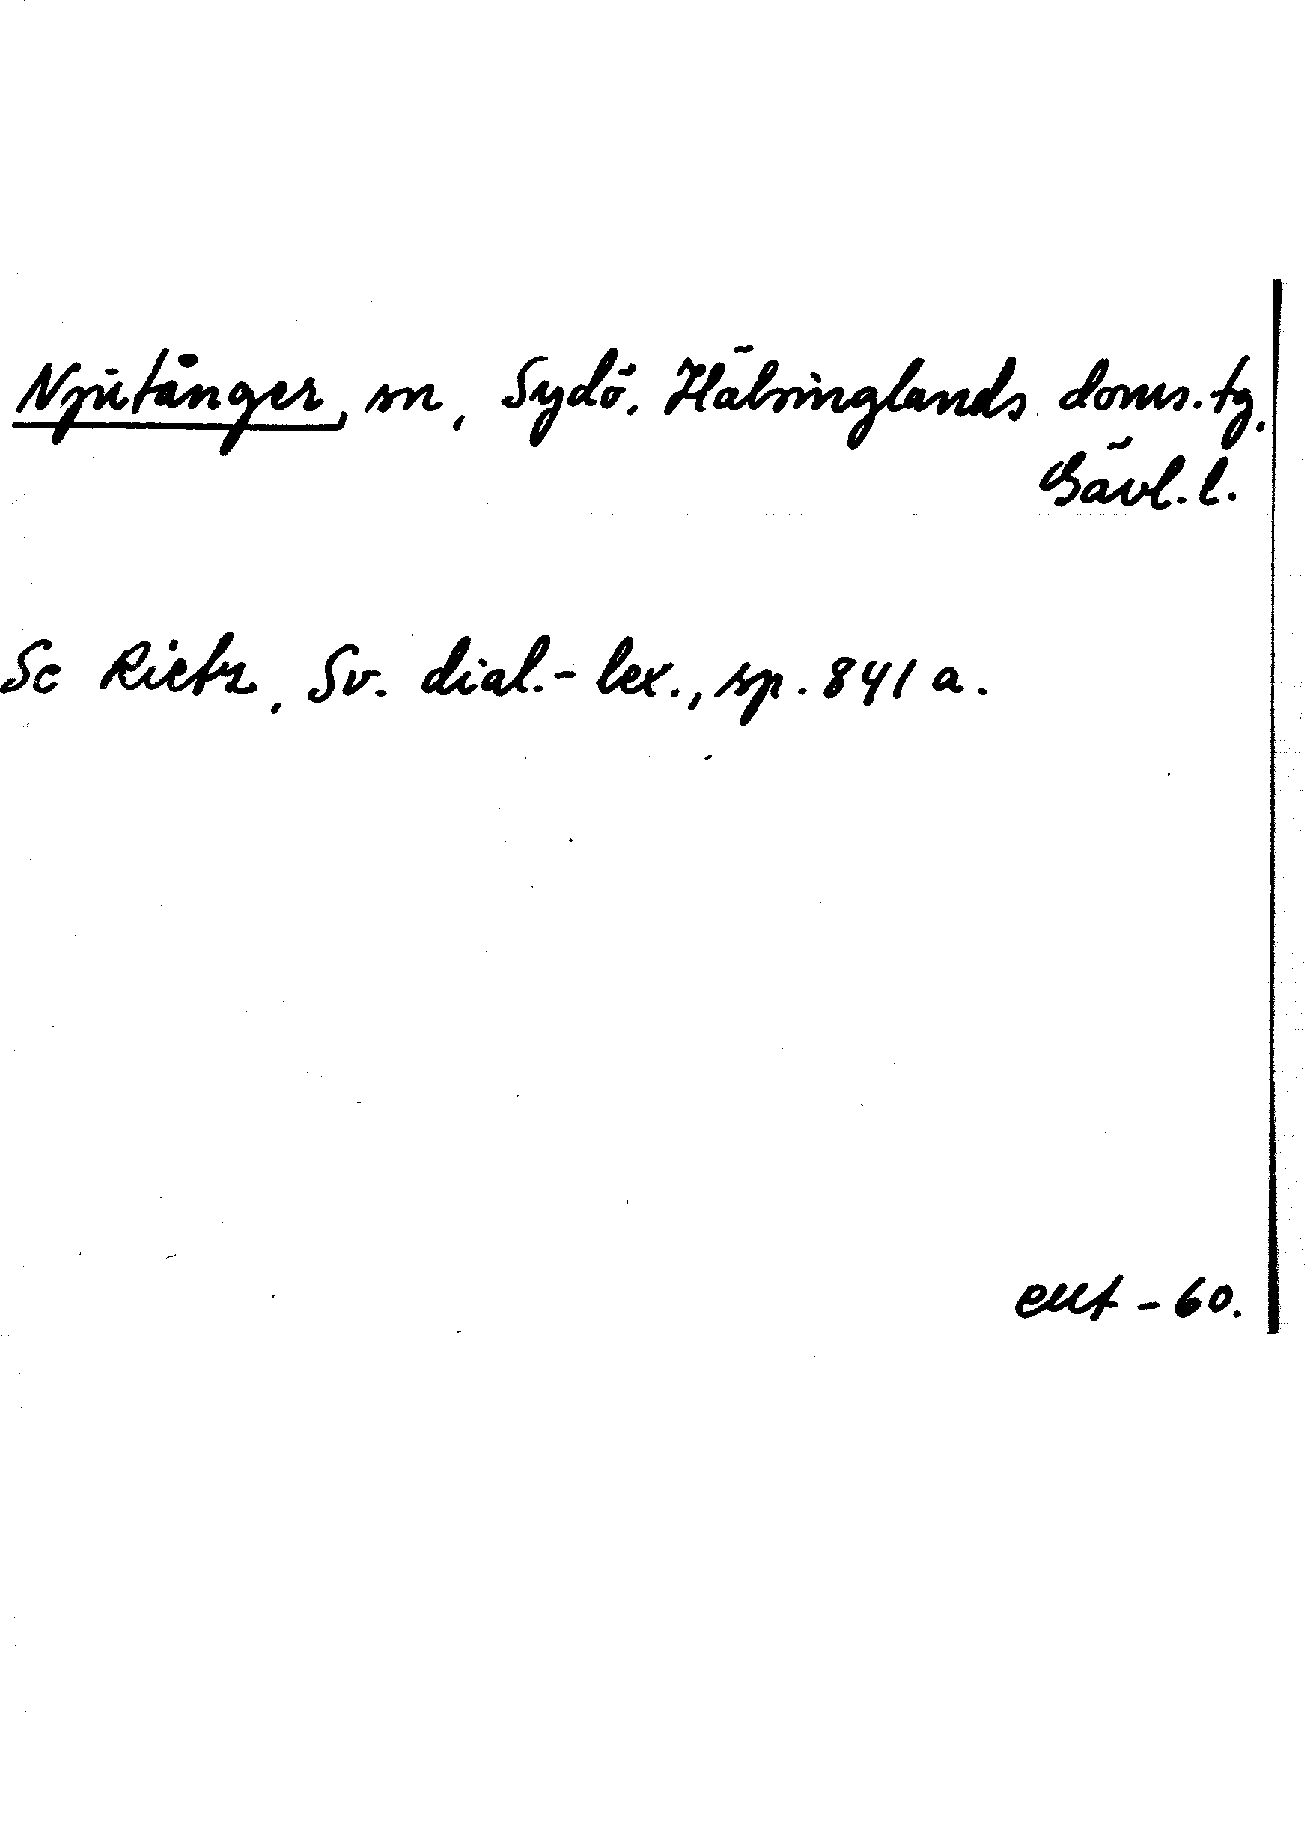 Njutånger, sn, Sydö. Hälsinglands doms.tg.
Gävl. l.
Se Rietz, Sv. dial.-lex., sp. 841 a.
EMT -60.